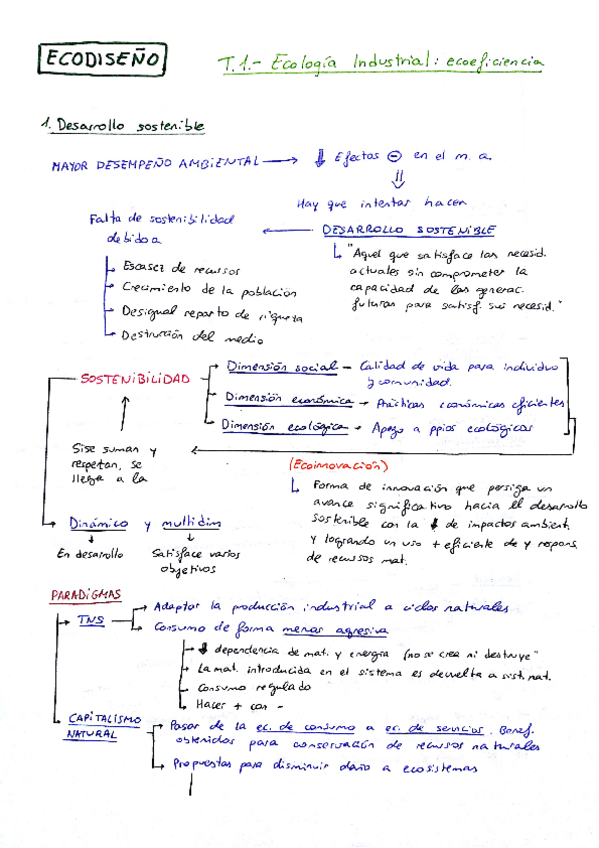 ECODISEÑO
T.1.- Ecología Industrial: ecoeficiencia
1. Desarrollo sostenible
MAYOR DESEMPEÑO AMBIENTAL → ↓ Efectos ⊖ en el m.a.
⇓
Hay que intentar hacer
Falta de sostenibilidad ← DESARROLLO SOSTENIBLE
debido a
"Aquel que satisface las necesid.
actuales sin comprometer la
capacidad de las generac.
futuras para satisf. sus necesid."
Escasez de recursos
Crecimiento de la población
Desigual reparto de riqueza
Destrucción del medio
SOSTENIBILIDAD
Dimensión social – Calidad de vida para individuo
y comunidad.
Dimensión económica → Prácticas económicas eficientes
Dimensión ecológica → Apego a ppios ecológicos
Si se suman y
respetan, se
llega a la
(Ecoinnovación)
Forma de innovación que persiga un
avance significativo hacia el desarrollo
sostenible con la ↓ de impactos ambient.
y logrando un uso + eficiente de y respons.
de recursos mat.
Dinámico y multidim
En desarrollo
Satisface varios
objetivos
PARADIGMAS
TNS
Adaptar la producción industrial a ciclos naturales
Consumo de forma menos agresiva
↓ dependencia de mat. y energía (no se crea ni destruye"
La mat. introducida en el sistema es devuelta a sist. nat.
Consumo regulado
Hacer + con -
CAPITALISMO
NATURAL
Pasar de la ec. de consumo a ec. de servicios. Benef.
obtenidos para conservación de recursos naturales
Propuestas para disminuir daño a ecosistemas